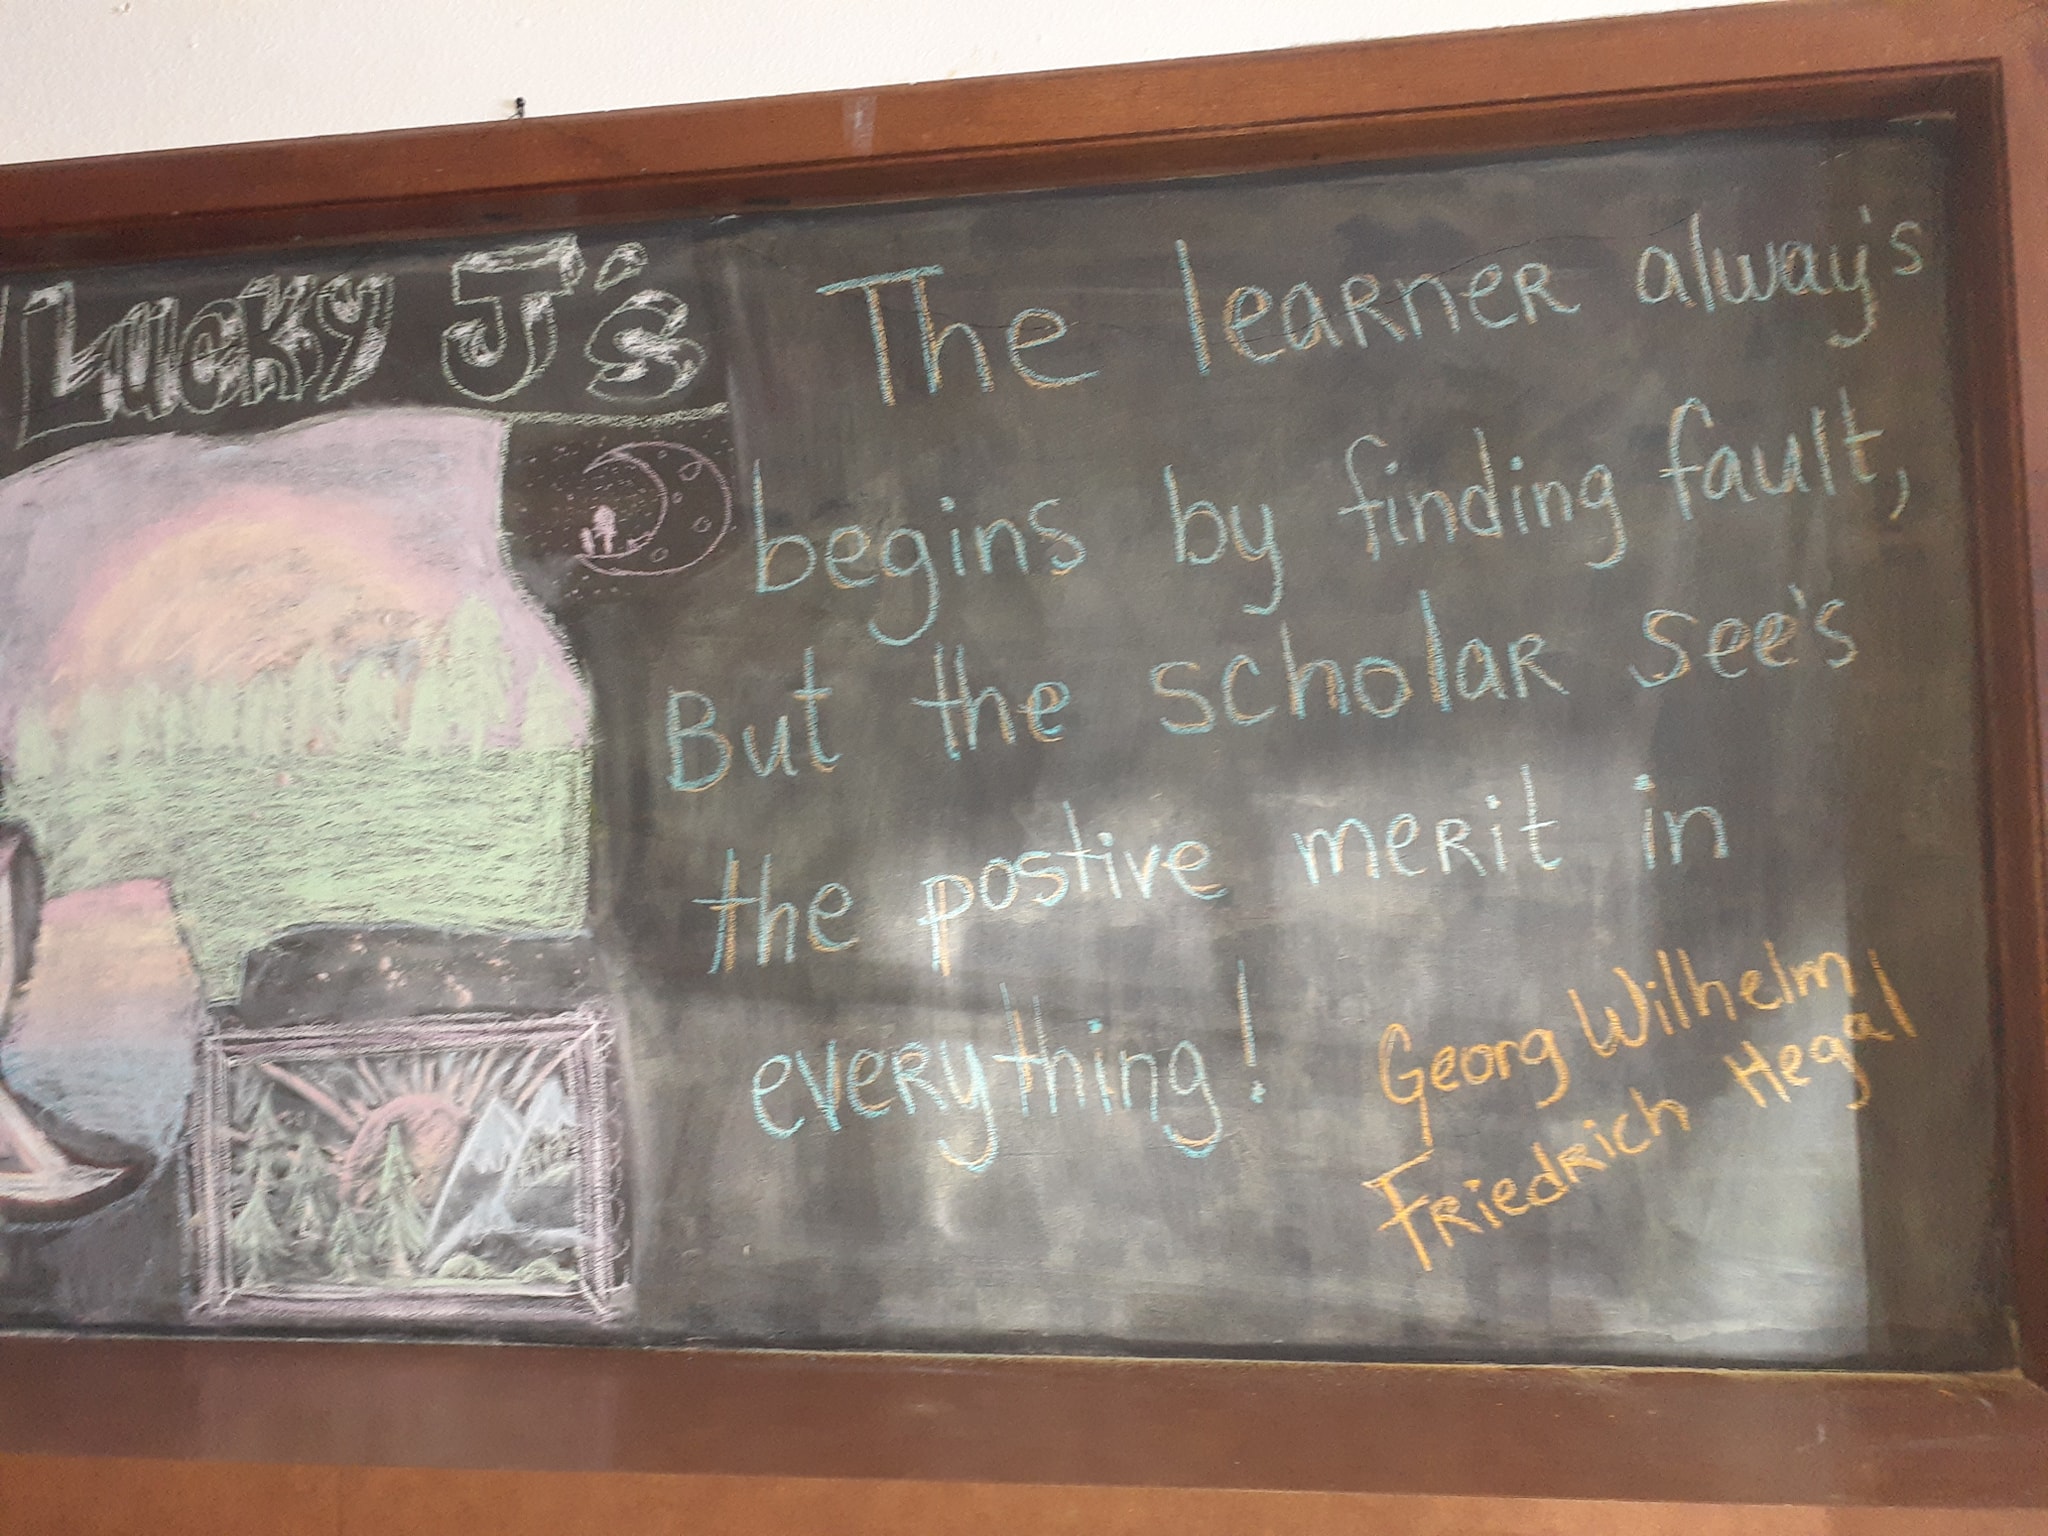 Lucky J's
The learner alway's
begins by finding fault,
But the scholar see's
the postive merit in
everything!
Georg Wilhelm
Friedrich Hegal